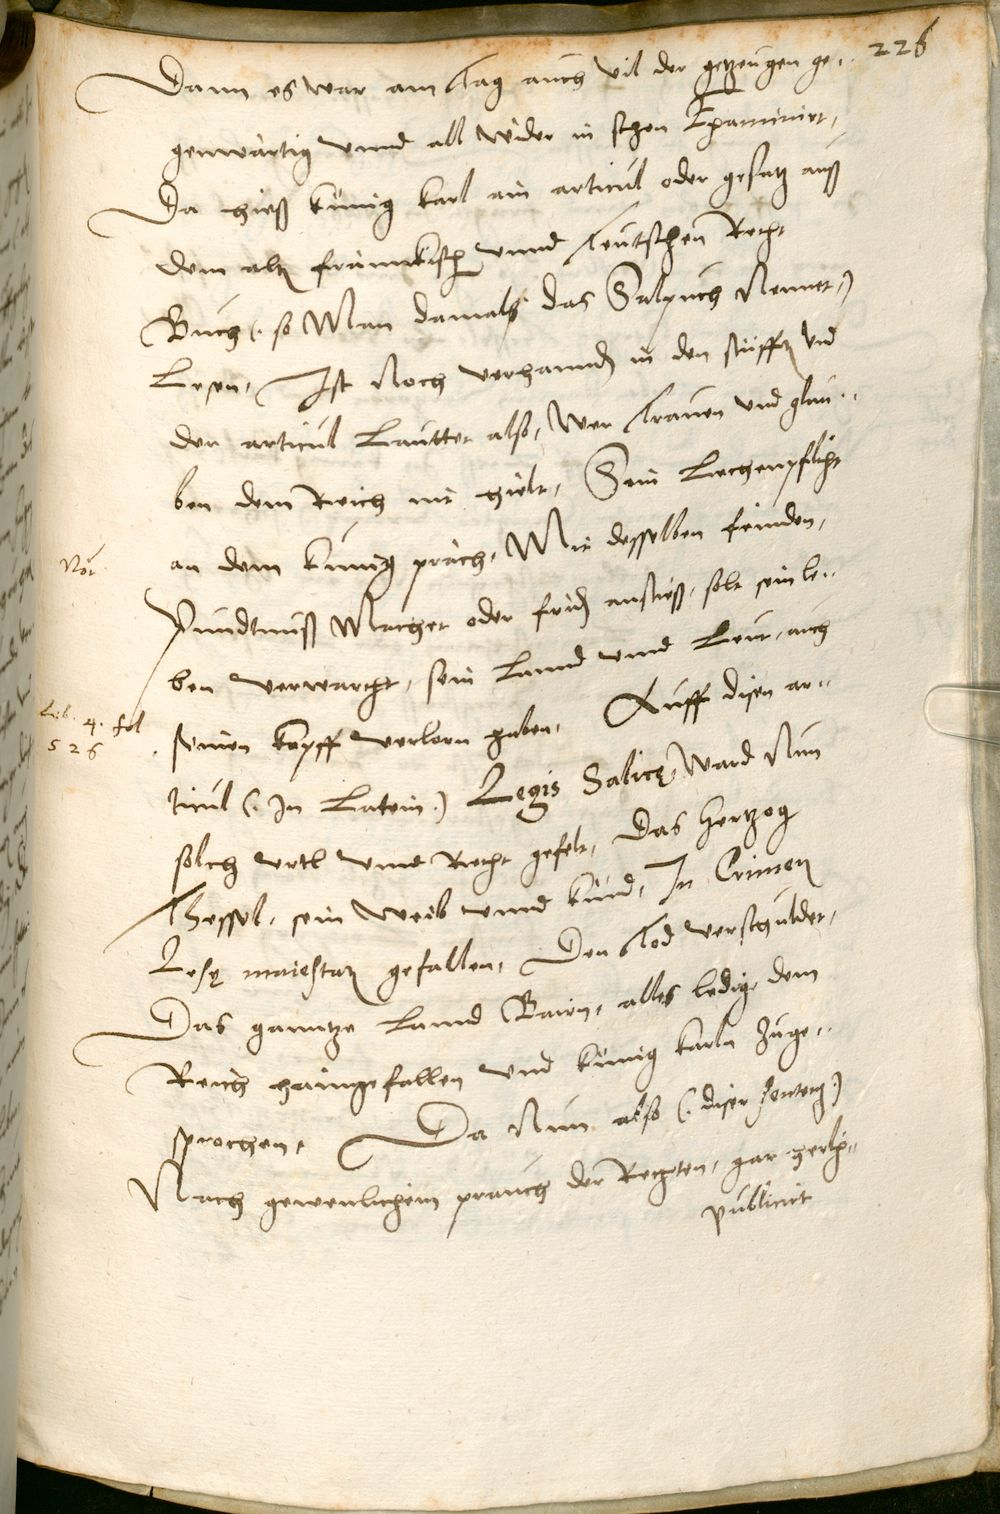 226
Dann es war am tag auch vil der getzeugen ge-
genwärtig vnnd all wider in schon Examinirt,
Da hieß künig karl ain articul oder gesatz auß
dem altn frännkischn vnnd teutschen Recht
Buch (. so Man damals das Salpuch Nennet.)
Lesen, Ist Noch verhannden in den stüfften vnd
der articul Lauttet also, Wer trauen vnd glau-
ben dem Reich nit hielt, Sein Lechenpflicht
an dem künig präch, Mit desselben feinden,
Not.
Pündtnuß Machet oder frid anstieß, solt sein le-
ben verwarcht, sein Lannd vnnd Leut, auch
Lib. 4. fol
526
seinen kopff verlorn haben, Auff disen ar-
ticul (. In Latein.) Legis Salicę, Ward Nun
solch vrtl vnnd Recht gefelt, Das Hertzog
Thessel, sein weib vnnd kind, In Crimen
Lesę maiestatis gefallen, Den tod verschuldet,
Das ganntze Lannd Bairn, alles ledig, dem
Reich haimgefallen vnd künig karln Zuge-
sprochen, Da Nun also (. diser sentenz.)
Nach gewenlichem prauch der Rechten, gar herlich
publicirt